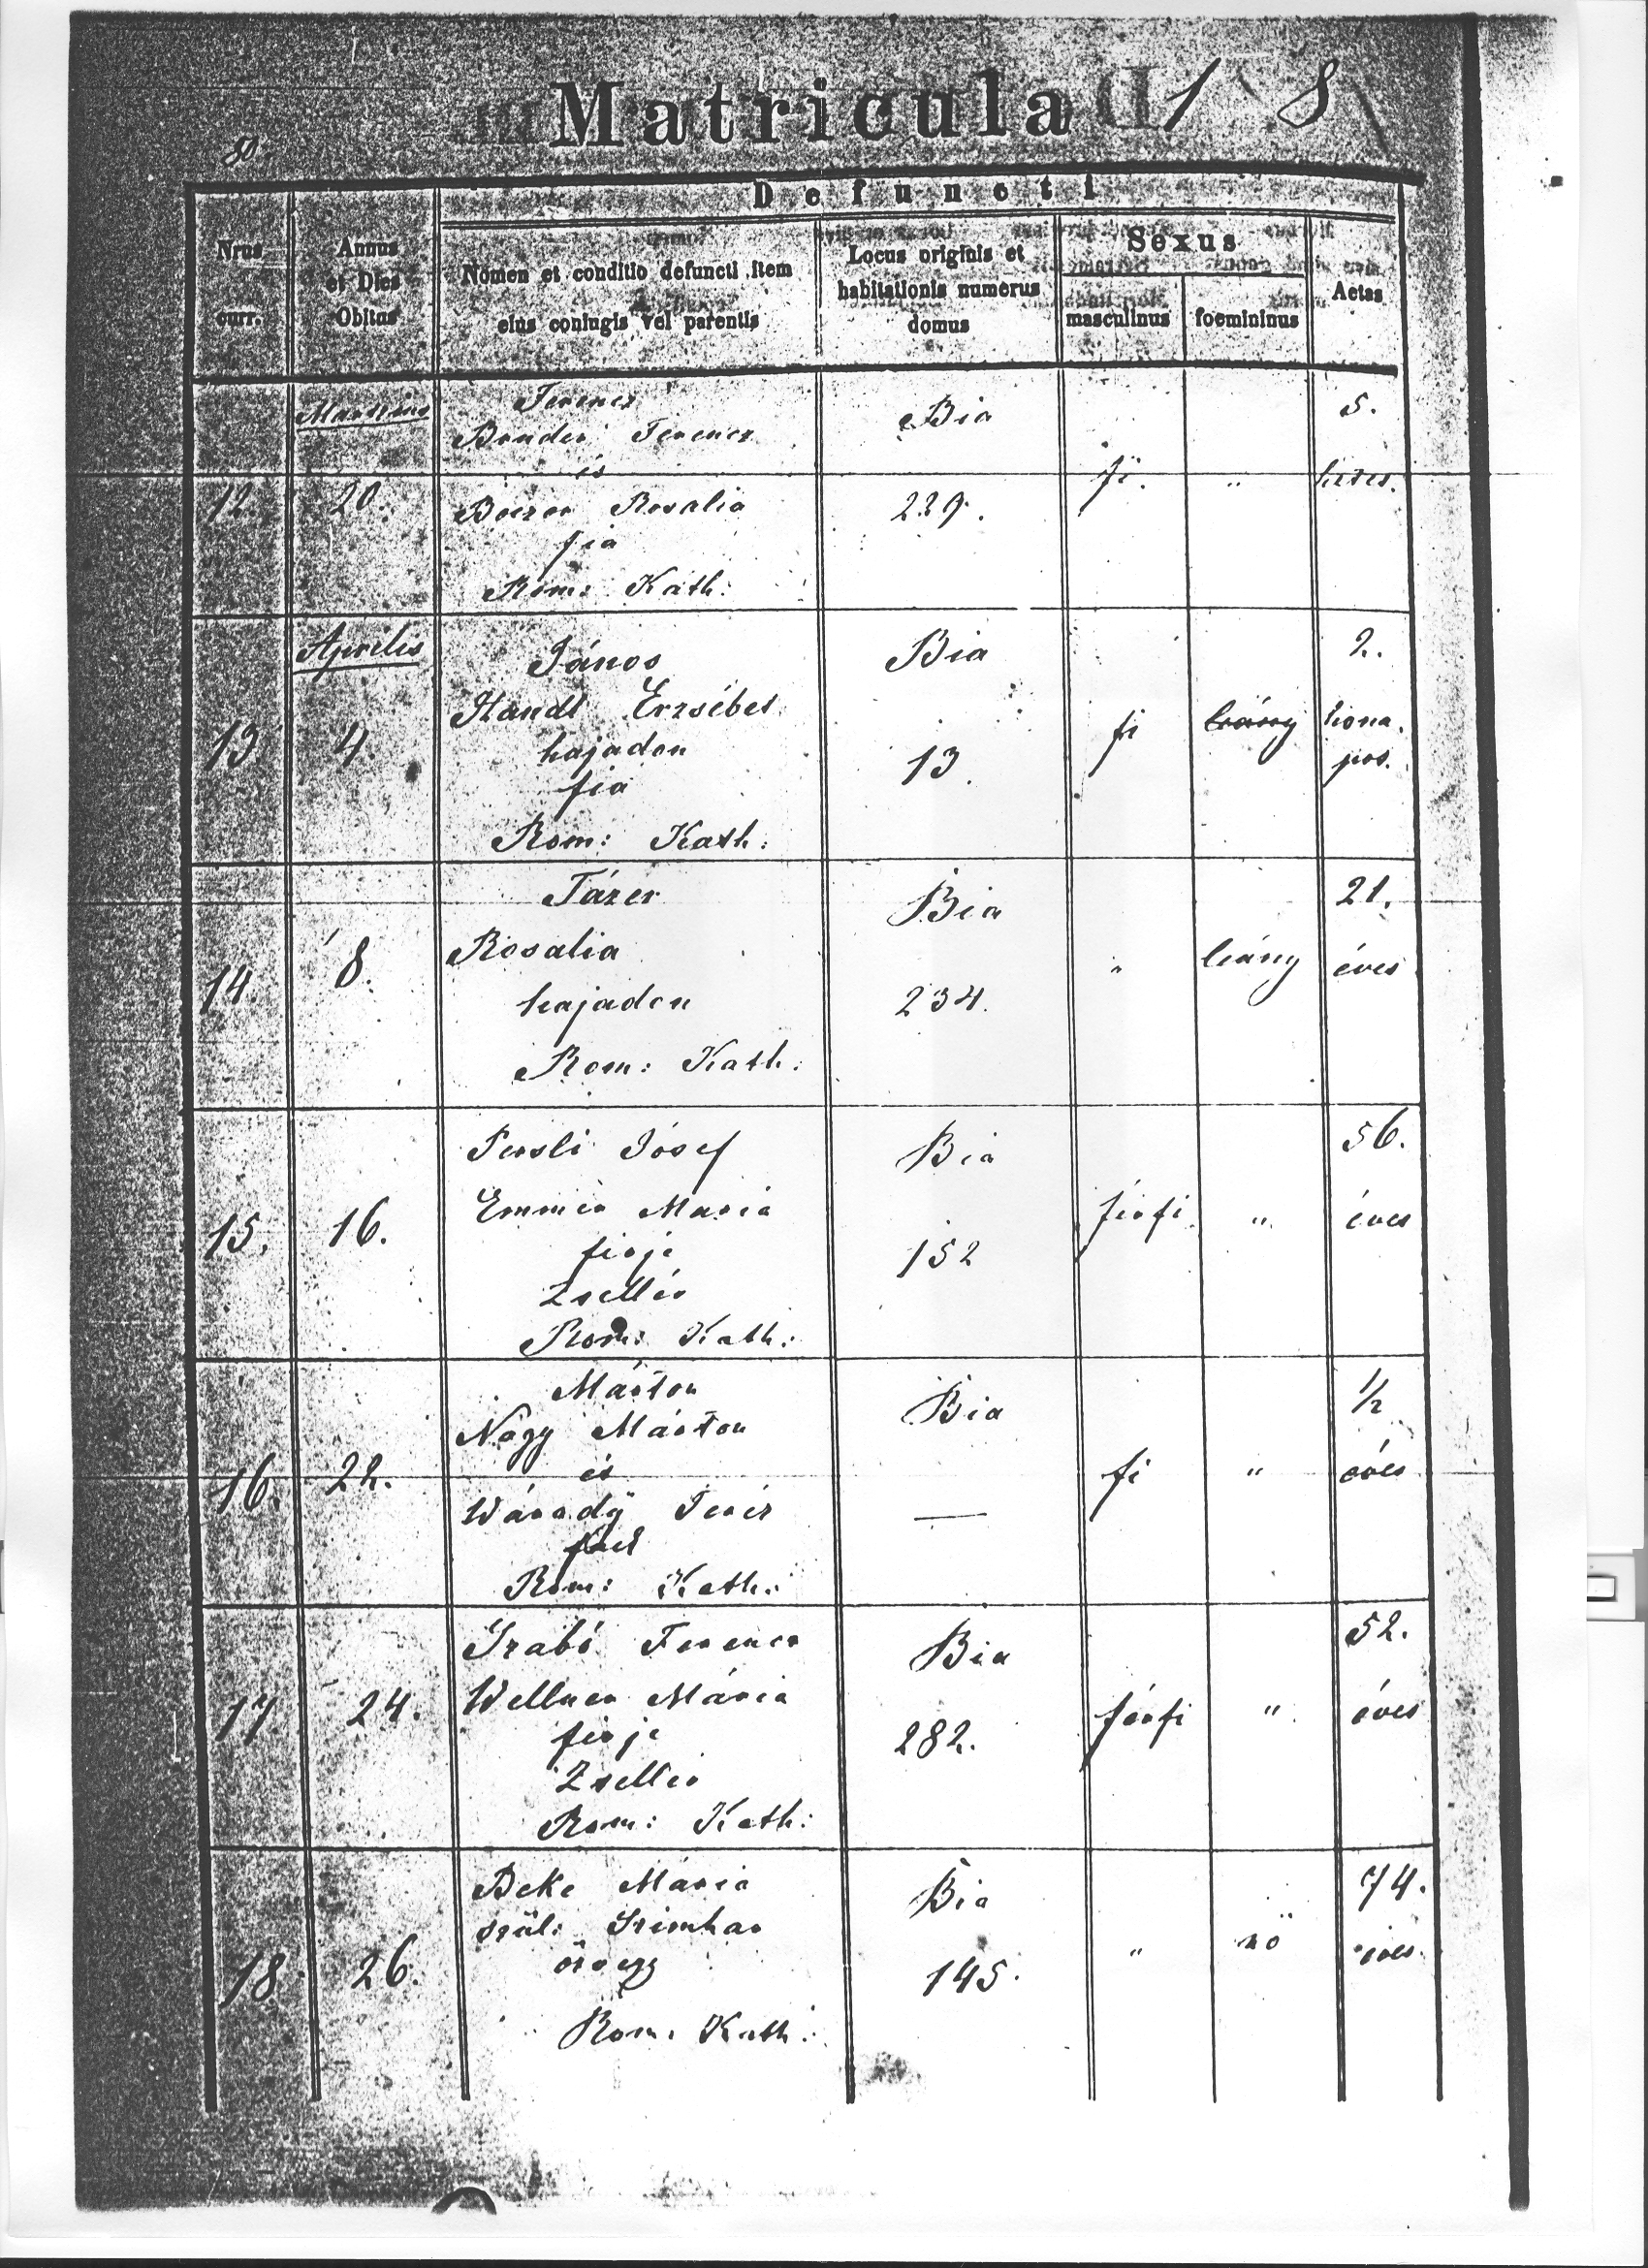 Matricula
18
80.
Defuncti
Nrus
curr.
Annus
et Dies
Obitus
Nomen et conditio defuncti item
eius coniugis vel parentis
Locus originis et
habitationis numerus
domus
Sexus
masculinus
foemininus
Aetas
Martius
12.
20.
Ferencz
Bander Ferencz
és
Rosalia
fia
Rom: Kath:
Bia
229.
fi.
"
5.
hetes.
Aprilis
13.
4.
János
Handl Erzsébet
hajadon
fia
Rom: Kath:
Bia
13.
fi
leány
2.
hona.
pos.
14
8.
Tázer
Rosalia
hajadon
Rom: Kath:
Bia
234.
"
leány
21.
éves
15.
16.
Persli Jósef
Emmer Maria
férje
Zsellér
Rom: Kath:
Bia
152
férfi
"
56.
éves
16.
22.
Márton
Nagy Márton
és
Várady Teréz
Rom: Kath:
Bia
—
fi
"
1/2
éves
17
24.
Szabó Ferencz
Wellner Mária
férje
Zsellér
Rom: Kath:
Bia
282.
férfi
"
52.
éves
18
26.
Beke Mária
szül: Szimhar
özvegy
Rom: Kath:
Bia
145.
"
nö
74.
éves